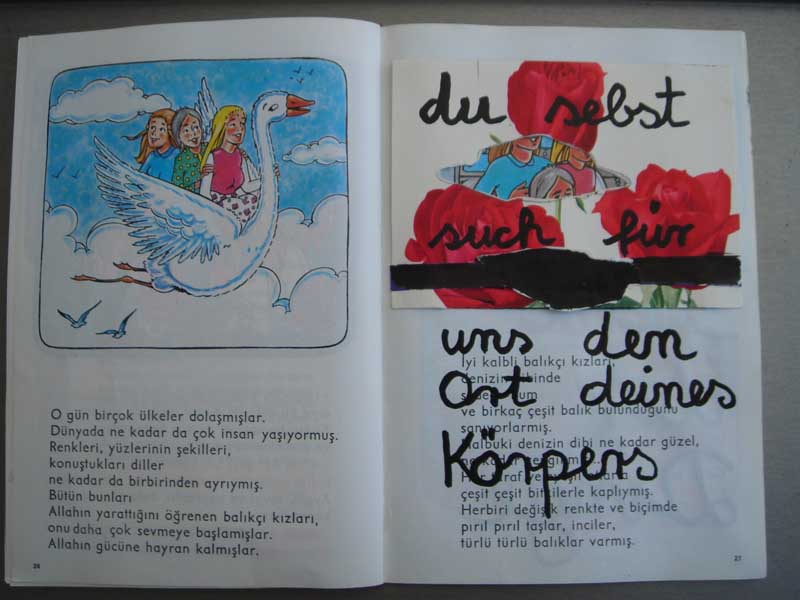 O gün birçok ülkeler dolaşmışlar.
Dünyada ne kadar da çok insan yaşıyormuş.
Renkleri, yüzlerinin şekilleri,
konuştukları diller
ne kadar da birbirinden ayrıymış.
Bütün bunları
Allahın yarattığını öğrenen balıkçı kızları,
onu daha çok sevmeye başlamışlar.
Allahın gücüne hayran kalmışlar.
26
du sebst
such für
uns den
Ort deines
Körpers
İyi kalbli balıkçı kızları,
denizin dibinde
kum
ve birkaç çeşit balık bulunduğunu
sanıyorlarmış.
Halbuki denizin dibi ne kadar güzel,
ne kadar
Her taraf
çeşit çeşit bitkilerle kaplıymış.
Herbiri değişik renkte ve biçimde
pırıl pırıl taşlar, inciler,
türlü türlü balıklar varmış.
27